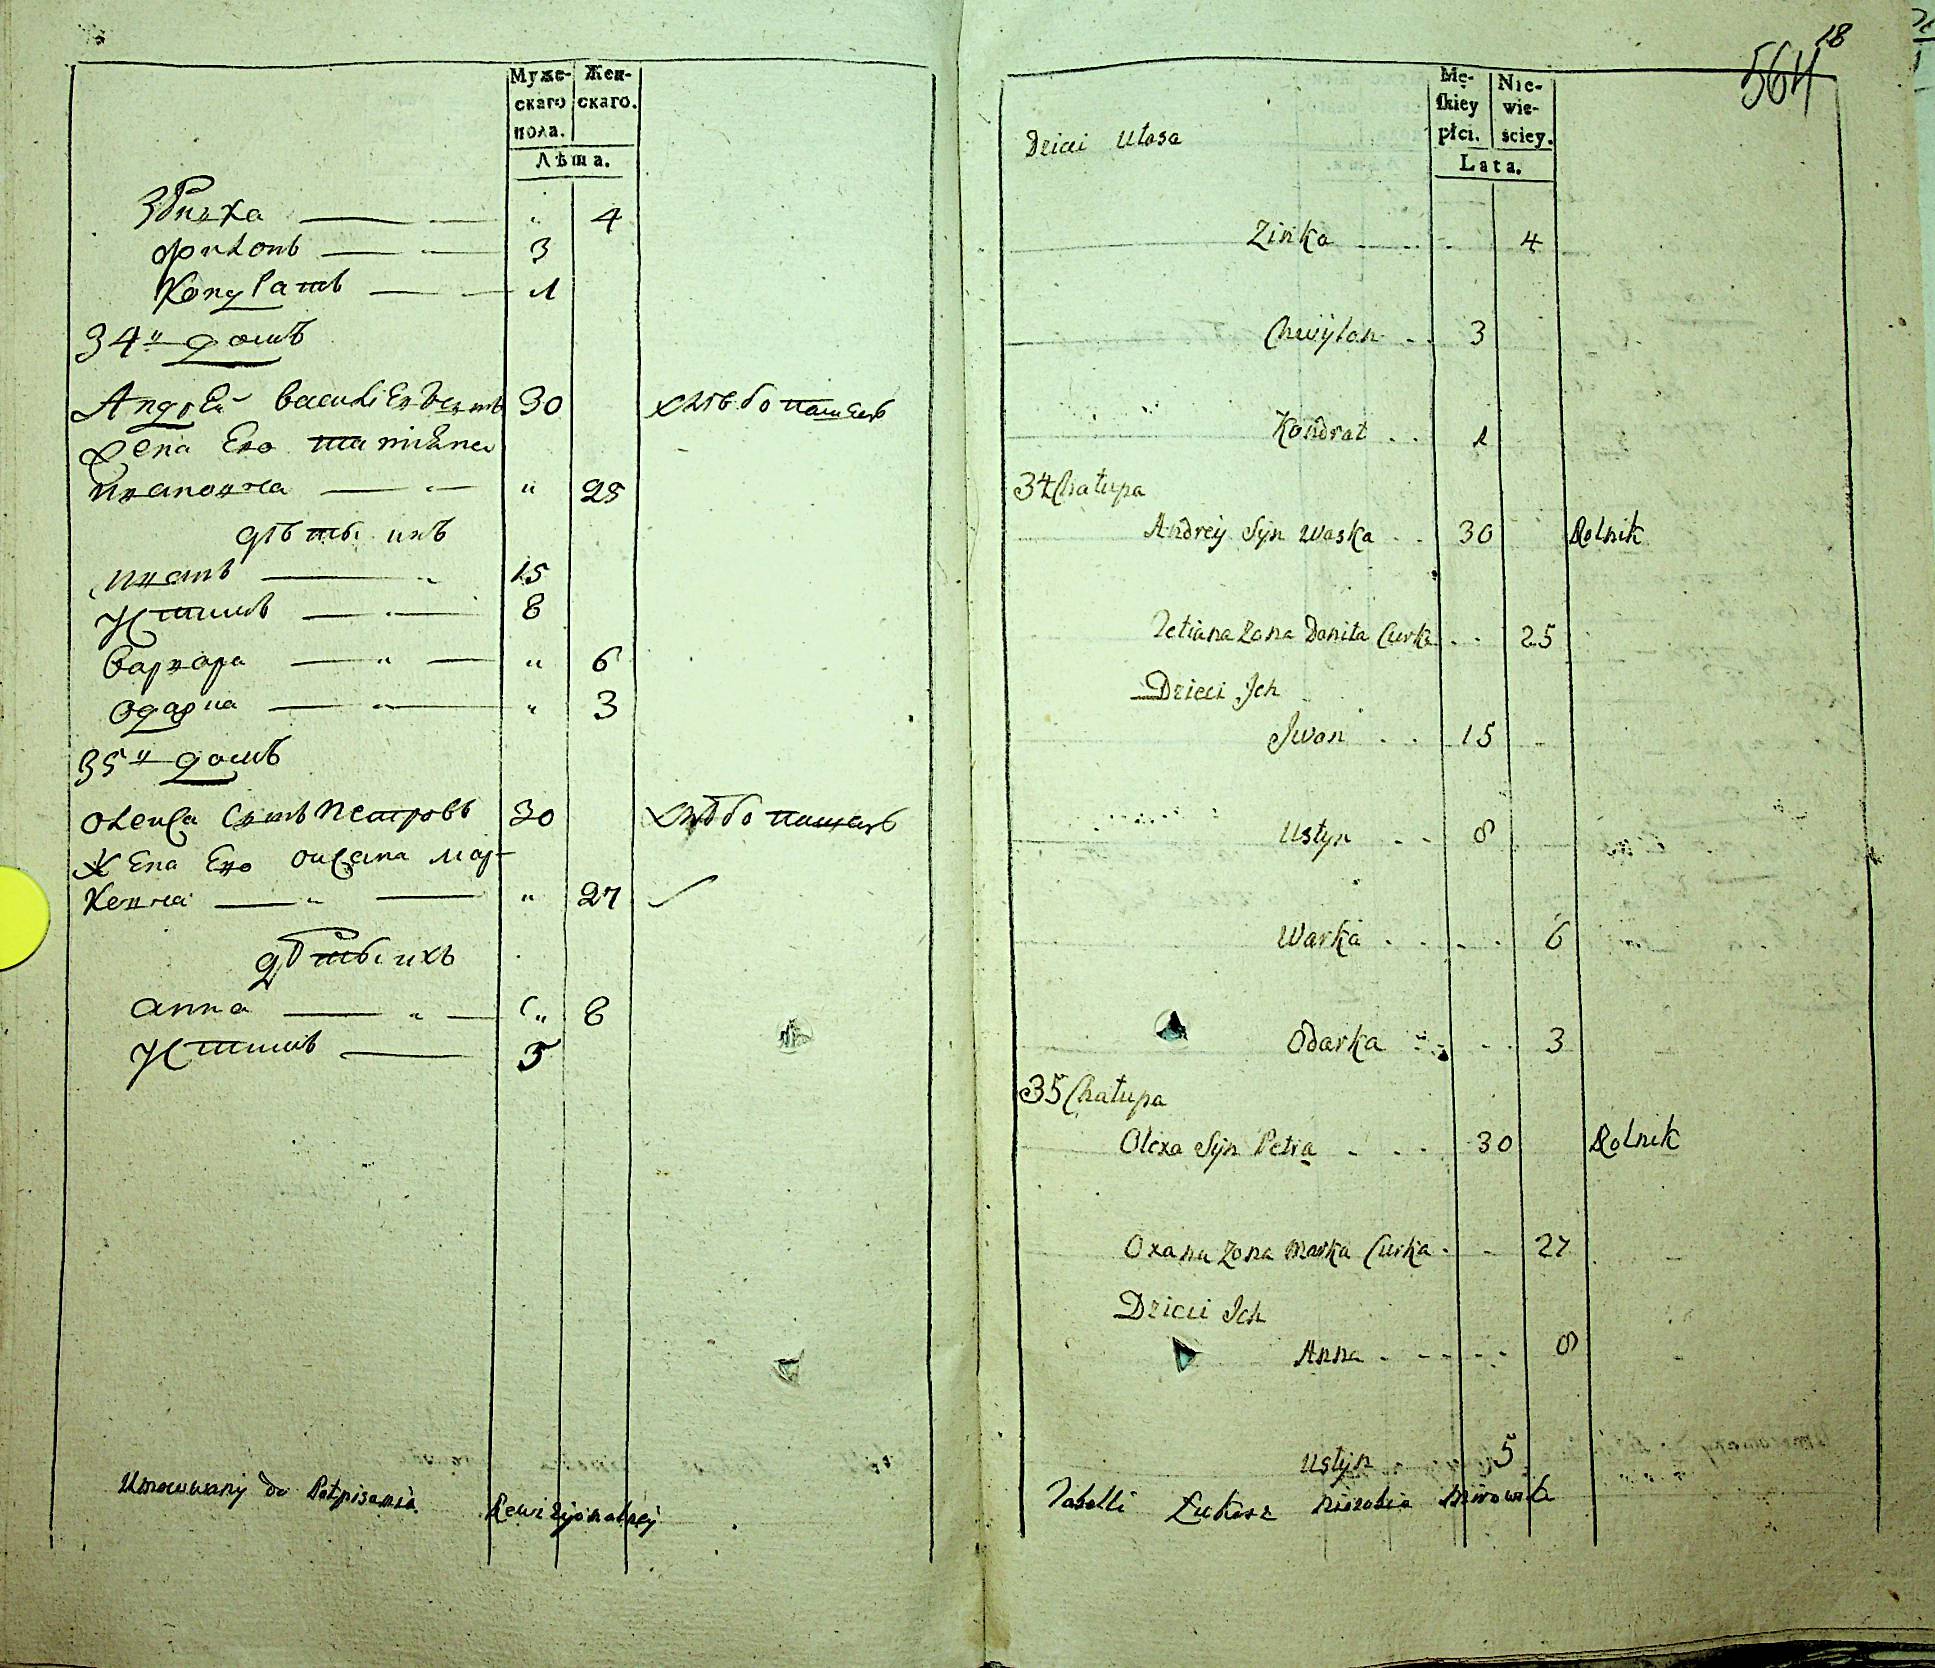 Муже-
скаго
пола.
Жен-
скаго.
Лѣта.
Зѣнька 4
Филонъ 3
Кондратъ 1
34й домъ
Андрей Василіевъ сынъ 30 хлѣбопашецъ
Жена его татіяна
Ивановна " 25
дѣти ихъ
Иванъ 15
Устимъ 8
Варвара " 6
Одарка " 3
35й домъ
Олекса сынъ Петровъ 30 хлѣбопашецъ
Жена Его Оксана мар-
ковна " 27
дѣти ихъ
Анна " 8
Устимъ 5
Umocowany do Potpisania Rewizyjonalney
18
564
Mę-
skiey
płci.
Nie-
wie-
sciey.
Lata.
Dzieci Ułasa
Zinka 4
Chwyłon 3
Kondrat 1
34 Chałupa
Andrey Syn Waska 30 Rolnik
Tetiana Zona Daniła Curka 25
Dzieci Ich
Iwan 15
Ustyn 8
Warka 6
Odarka 3
35 Chałupa
Olexa Syn Petra 30 Rolnik
Oxana Zona Marka Curka 27
Dzieci Ich
Anna 8
Ustyn 5
Tabelli Łukasz